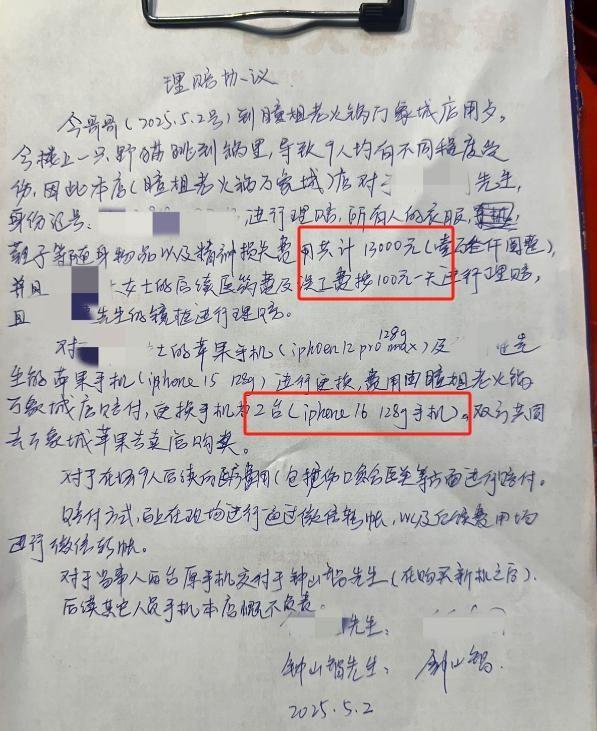 理赔协议
今哥哥(2025.5.2号)到瞳姐老火锅万象城店用歺,
今楼上一只野猫跳到锅里,导致9人均有不同程度受
伤,因此本店(瞳姐老火锅万象城)店对于 先生,
身份证号: ,进行理赔,所有人的衣服,
鞋子等随身物品以及精神损失费用共计13000元(壹万叁仟圆整),
并且 女士的后续医药费及误工费按100元一天进行理赔,
且 先生的镜框进行理赔。
对 士的苹果手机(iphoen 12 pro max 128g)及 先
生的苹果手机(iphone 15 128g)进行更换,费用由瞳姐老火锅
万象城店赔付,更换手机为2台(iphone 16 128g手机)。双方共同
去万象城苹果专卖店购买。
对于在场9人后续的医药费用(包括伤口愈合医美等方面进行赔付。
赔付方式,以在现场进行通过微信转帐,以及后续费用均
进行微信转帐。
对于当事人两台原手机交付于钟山智先生(在购买新机之后).
后续其它人员手机本店概不负责。
先生:
钟山智先生: 钟山智.
2025.5.2